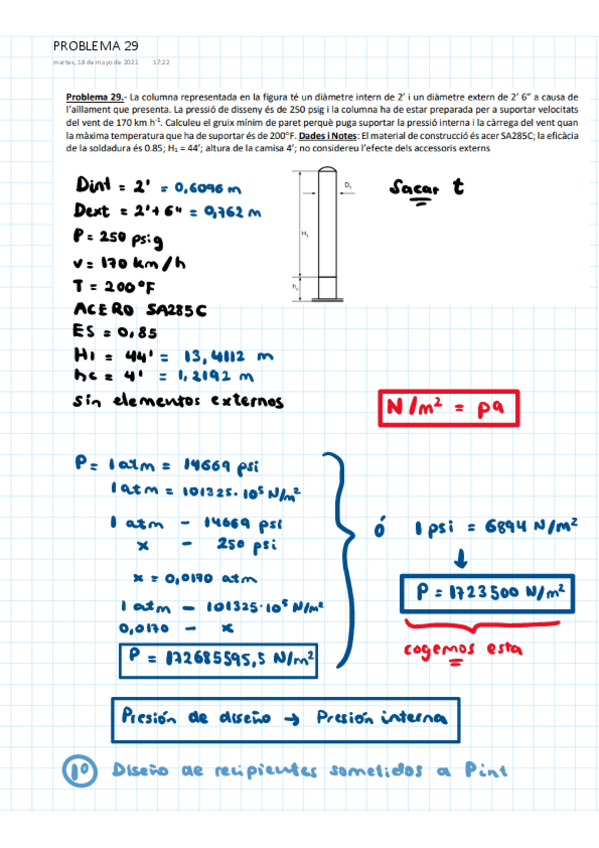 PROBLEMA 29
martes, 18 de mayo de 2021 17:22
Problema 29.- La columna representada en la figura té un diàmetre intern de 2’ i un diàmetre extern de 2’ 6” a causa de
l’aïllament que presenta. La pressió de disseny és de 250 psig i la columna ha de estar preparada per a suportar velocitats
del vent de 170 km h-1. Calculeu el gruix mínim de paret perquè puga suportar la pressió interna i la càrrega del vent quan
la màxima temperatura que ha de suportar és de 200°F. Dades i Notes: El material de construcció és acer SA285C; la eficàcia
de la soldadura és 0.85; H1 = 44’; altura de la camisa 4’; no considereu l’efecte dels accessoris externs
Dint = 2' = 0,6096 m
Dext = 2'+6" = 0,762 m
P = 250 psig
v = 170 km/h
T = 200°F
ACERO SA285C
ES = 0,85
H1 = 44' = 13,4112 m
hc = 4' = 1,2192 m
sin elementos externos
Sacar t
H1
D1
N/m² = pa
P = 1 atm = 14669 psi
1 atm = 101325·10⁵ N/m²
1 atm - 14669 psi
x - 250 psi
x = 0,0170 atm
1 atm - 101325·10⁵ N/m²
0,0170 - x
P = 172685595,5 N/m²
ó 1 psi = 6894 N/m²
P = 1723500 N/m²
cogemos esta
Presión de diseño → Presión interna
1º Diseño de recipientes sometidos a Pint